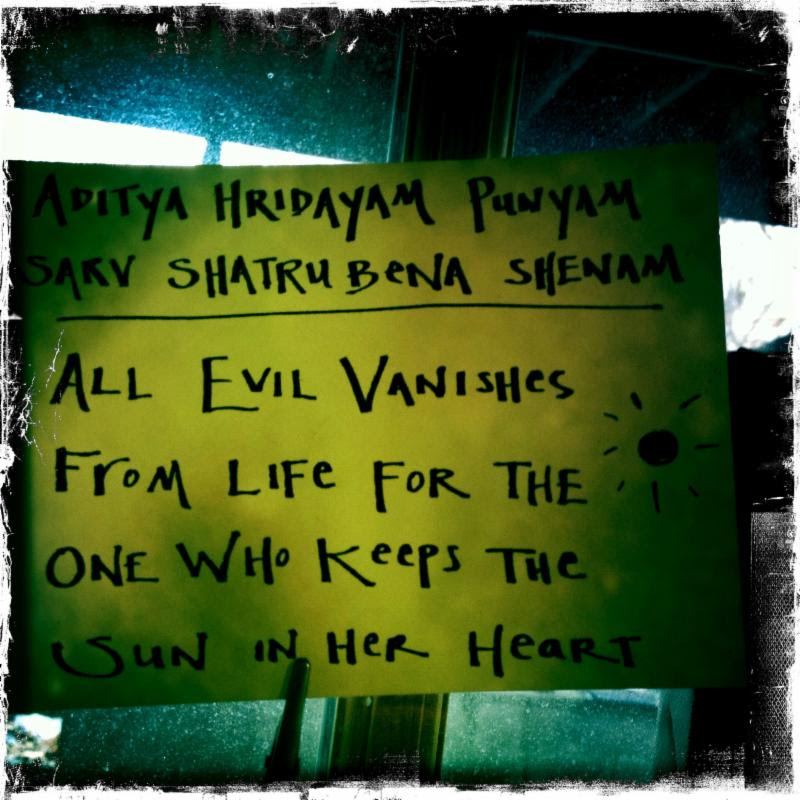 ADITYA HRIDAYAM PUNYAM
SARV SHATRU BENA SHENAM
ALL EVIL VANISHES
FROM LIFE FOR THE
ONE WHO KEEPS THE
SUN IN HER HEART